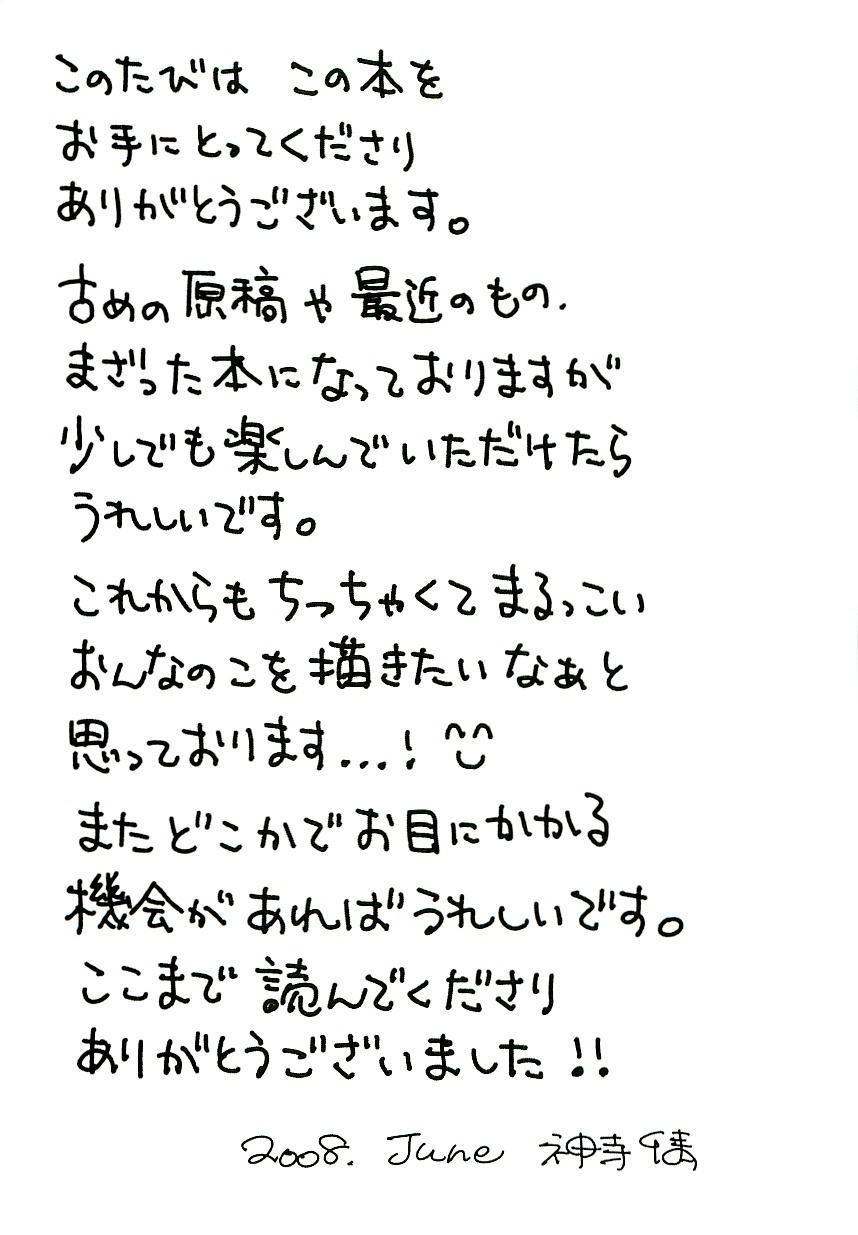 このたびは この本を
お手にとってくださり
ありがとうございます。
古めの原稿や最近のもの、
まざった本になっておりますが
少しでも楽しんでいただけたら
うれしいです。
これからもちっちゃくてまるっこい
おんなのこを描きたいなぁと
思っております...! ^^
またどこかでお目にかかる
機会があればうれしいです。
ここまで読んでくださり
ありがとうございました!!
2008. June 神寺